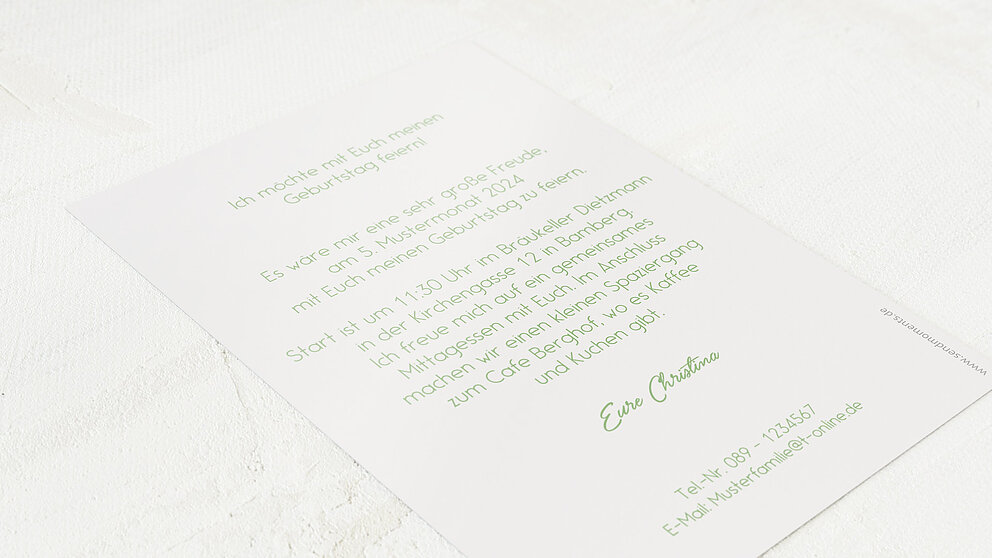 Ich möchte mit Euch meinen
Geburtstag feiern!
Es wäre mir eine sehr große Freude,
am 5. Mustermonat 2024
mit Euch meinen Geburtstag zu feiern.
Start ist um 11:30 Uhr im Bräukeller Dietzmann
in der Kirchengasse 12 in Bamberg.
Ich freue mich auf ein gemeinsames
Mittagessen mit Euch. Im Anschluss
machen wir einen kleinen Spaziergang
zum Cafe Berghof, wo es Kaffee
und Kuchen gibt.
Eure Christina
Tel.-Nr. 089 - 1234567
E-Mail: Musterfamilie@t-online.de
www.sendmoments.de